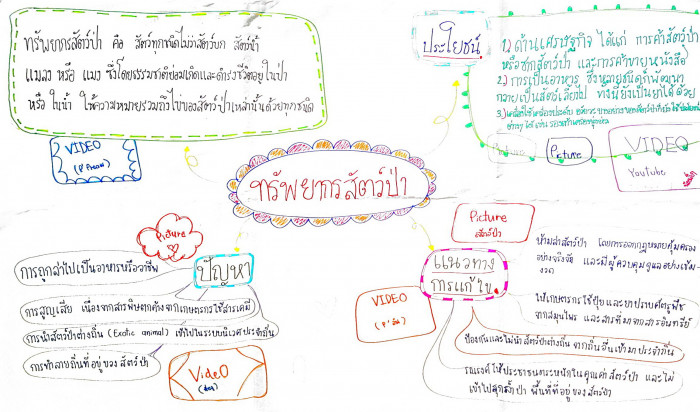 ทรัพยากรสัตว์ป่า คือ สัตว์ทุกชนิดไม่ว่าสัตว์บก สัตว์น้ำ
แมลง หรือ แมง ซึ่งโดยธรรมชาติย่อมเกิดและดำรงชีวิตอยู่ในป่า
หรือ ในน้ำ ให้ความหมายรวมถึงไข่ของสัตว์ป่าเหล่านั้นด้วยทุกชนิด
VIDEO
ประโยชน์
1.) ด้านเศรษฐกิจ ได้แก่ การค้าสัตว์ป่า
หรือซากสัตว์ป่า และการค้าขายหนังสือ
2.) การเป็นอาหาร ซึ่งหลายชนิดก็พัฒนา
กลายเป็นสัตว์เลี้ยงไป ทั้งที่ยังเป็นยาได้ด้วย
3.)
Picture
Picture
VIDEO
Youtube
ทรัพยากรสัตว์ป่า
Picture
ปัญหา
การถูกล่าไปเป็นอาหารหรืออาชีพ
การสูญเสีย เนื่องจากสารพิษตกค้างจากเกษตรกรใช้สารเคมี
การนำสัตว์ป่าต่างถิ่น (Exotic animal) เข้าไปในระบบนิเวศประจำถิ่น
การทำลายถิ่นที่อยู่ของสัตว์ป่า
VideO
Picture
สัตว์ป่า
แนวทาง
การแก้ไข
VIDEO
ห้ามล่าสัตว์ป่า โดยการออกกฎหมายคุ้มครอง
อย่างจริงจัง และมีผู้ควบคุมดูแลอย่างเข้ม
งวด
ให้เกษตรกรใช้ปุ๋ยและยาปราบศัตรูพืช
จากสมุนไพร และสารที่มาจากสารอินทรีย์
ป้องกันและไม่นำสัตว์ป่าต่างถิ่น จากถิ่นอื่นเข้ามาประจำถิ่น
รณรงค์ให้ประชาชนตระหนักในคุณค่าสัตว์ป่า และไม่
เข้าไปลุกล้ำป่า พื้นที่ที่อยู่ของสัตว์ป่า